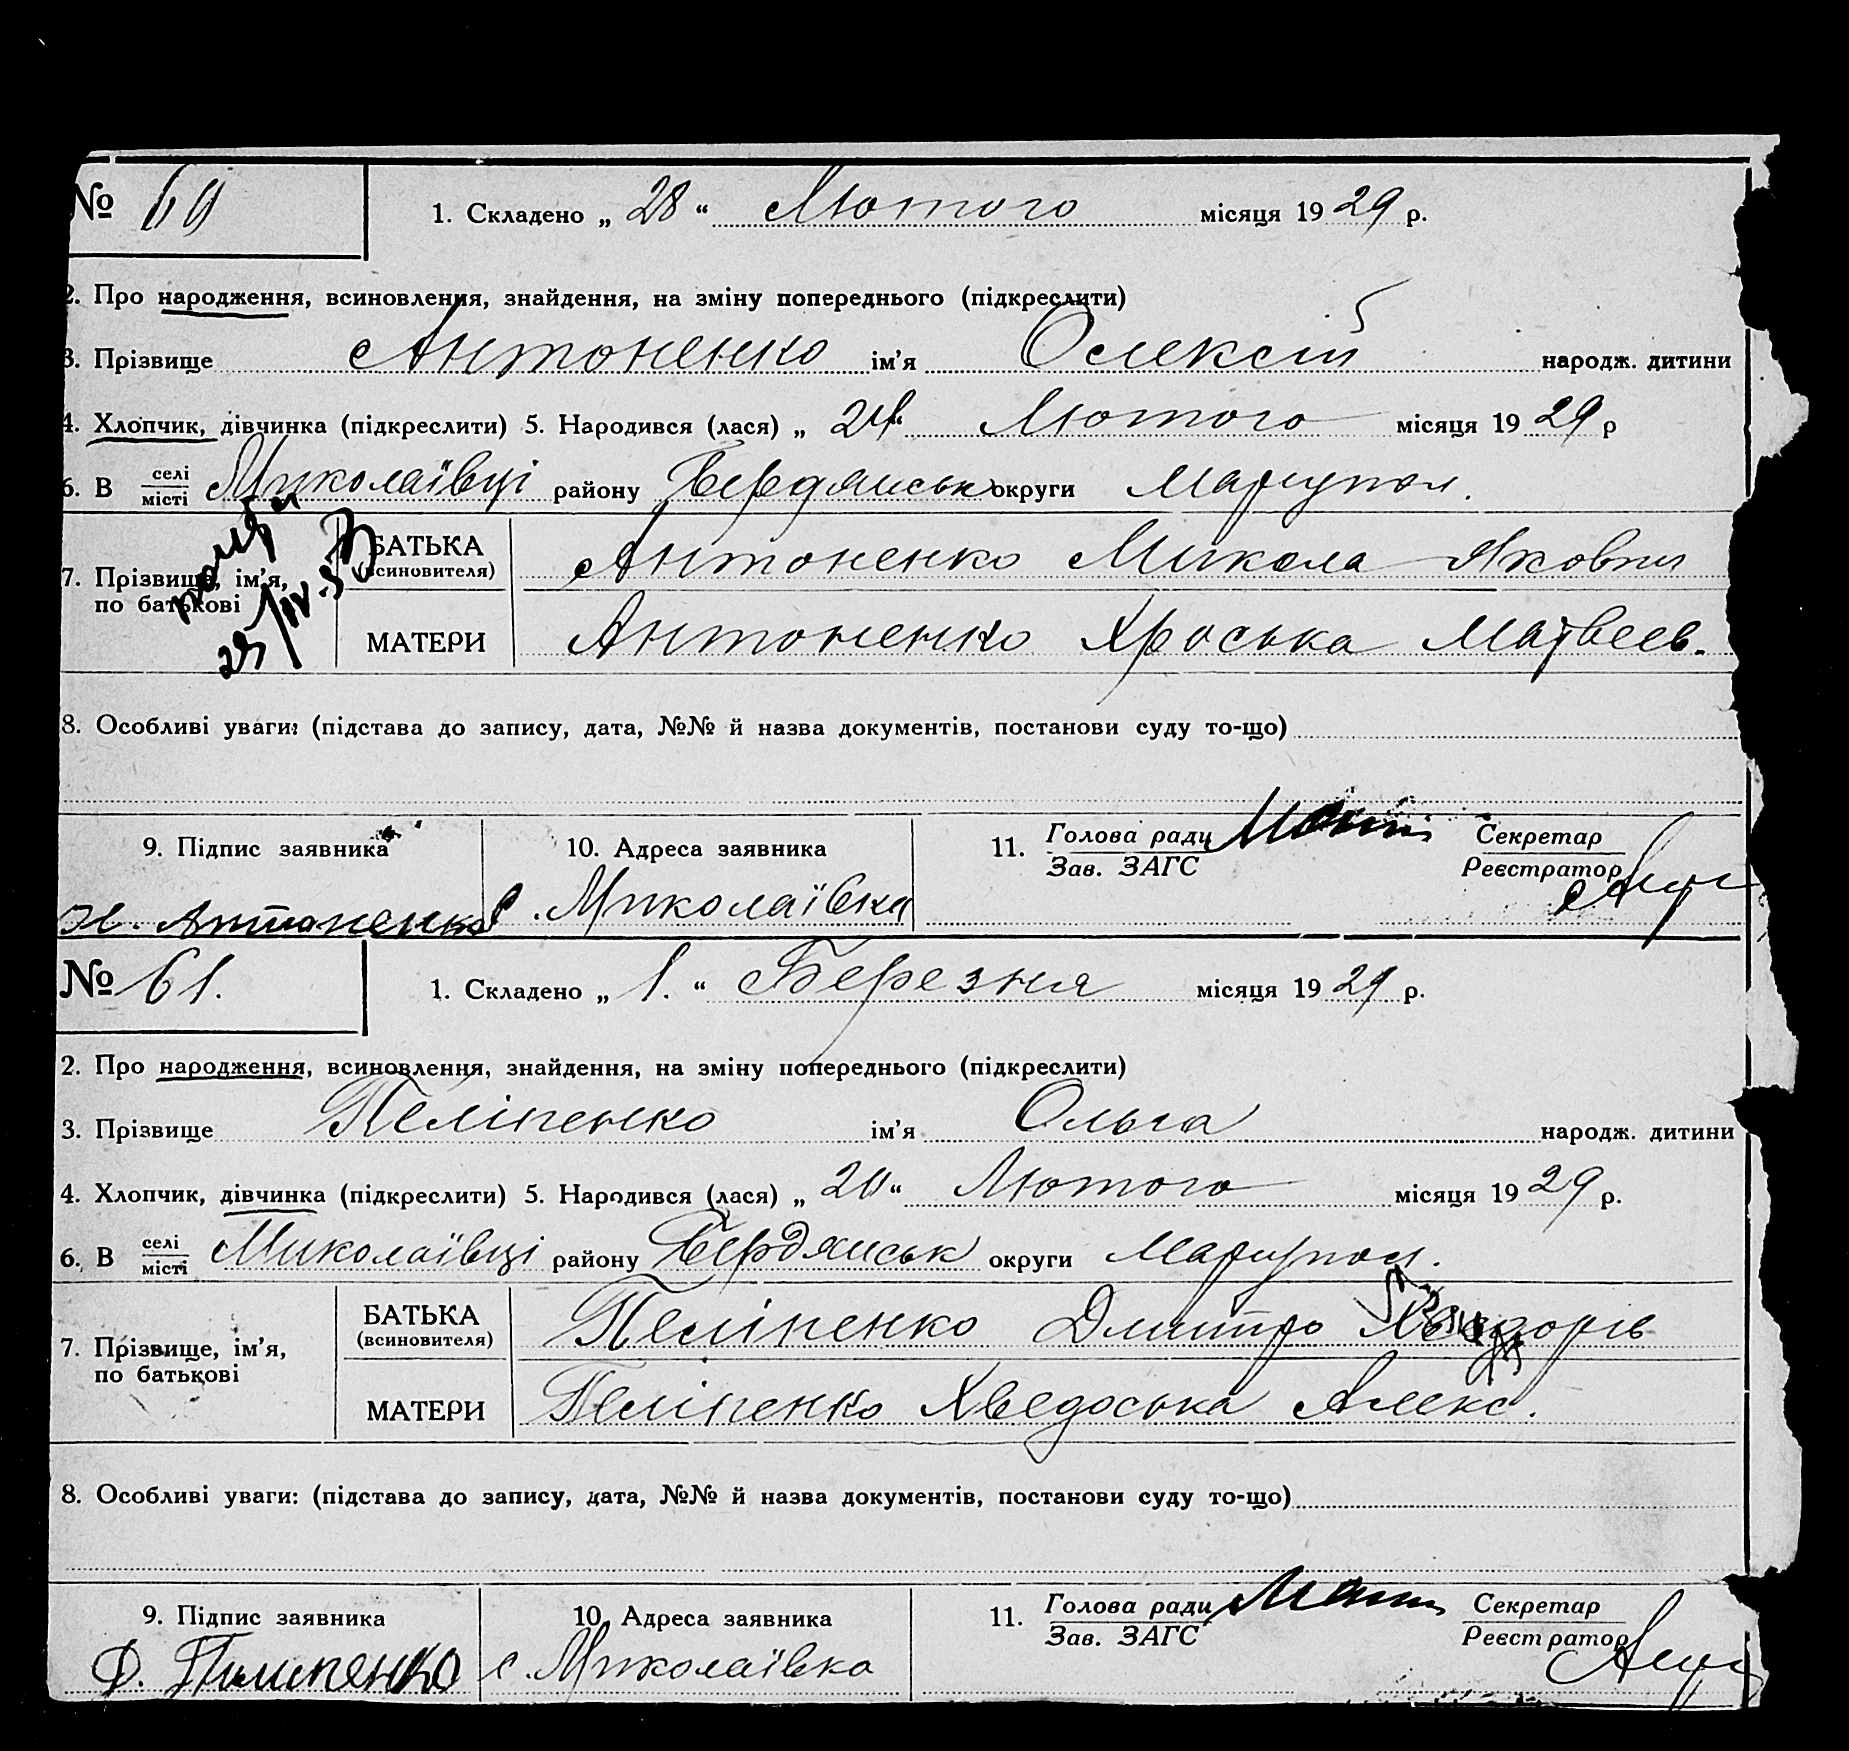 № 60
1. Складено „ 28 “ Лютого місяця 19 29 р.
2. Про народження, всиновлення, знайдення, на зміну попереднього (підкреслити)
3. Прізвище Антоненко ім'я Олексій народж. дитини
4. Хлопчик, дівчинка (підкреслити) 5. Народився (лася) „ “ Лютого місяця 19 29 р
6. В селі місті Миколаївці району Бердянськ округи Маріупол.
7. Прізвище, ім'я, по батькові
БАТЬКА (всиновителя) Антоненко Микола Якович
МАТЕРИ Антоненко Хроська Матвеев.
8. Особливі уваги: (підстава до запису, дата, №№ й назва документів, постанови суду то-що)
9. Підпис заявника
10. Адреса заявника
11. Голова ради Зав. ЗАГС
Секретар Реєстратор
Антоненко
с. Миколаївка
№ 61.
1. Складено „ 1. “ Березня місяця 19 29 р.
2. Про народження, всиновлення, знайдення, на зміну попереднього (підкреслити)
3. Прізвище Пеліпенко ім'я Ольга народж. дитини
4. Хлопчик, дівчинка (підкреслити) 5. Народився (лася) „ 20 “ Лютого місяця 19 29 р.
6. В селі місті Миколаївці району Бердянськ округи Маріупол.
7. Прізвище, ім'я, по батькові
БАТЬКА (всиновителя) Пеліпенко Дмитро
МАТЕРИ Пеліпенко Хведоська Алекс.
8. Особливі уваги: (підстава до запису, дата, №№ й назва документів, постанови суду то-що)
9. Підпис заявника
10. Адреса заявника
11. Голова ради Зав. ЗАГС
Секретар Реєстратор
Д. Пилипенко
с. Миколаївка